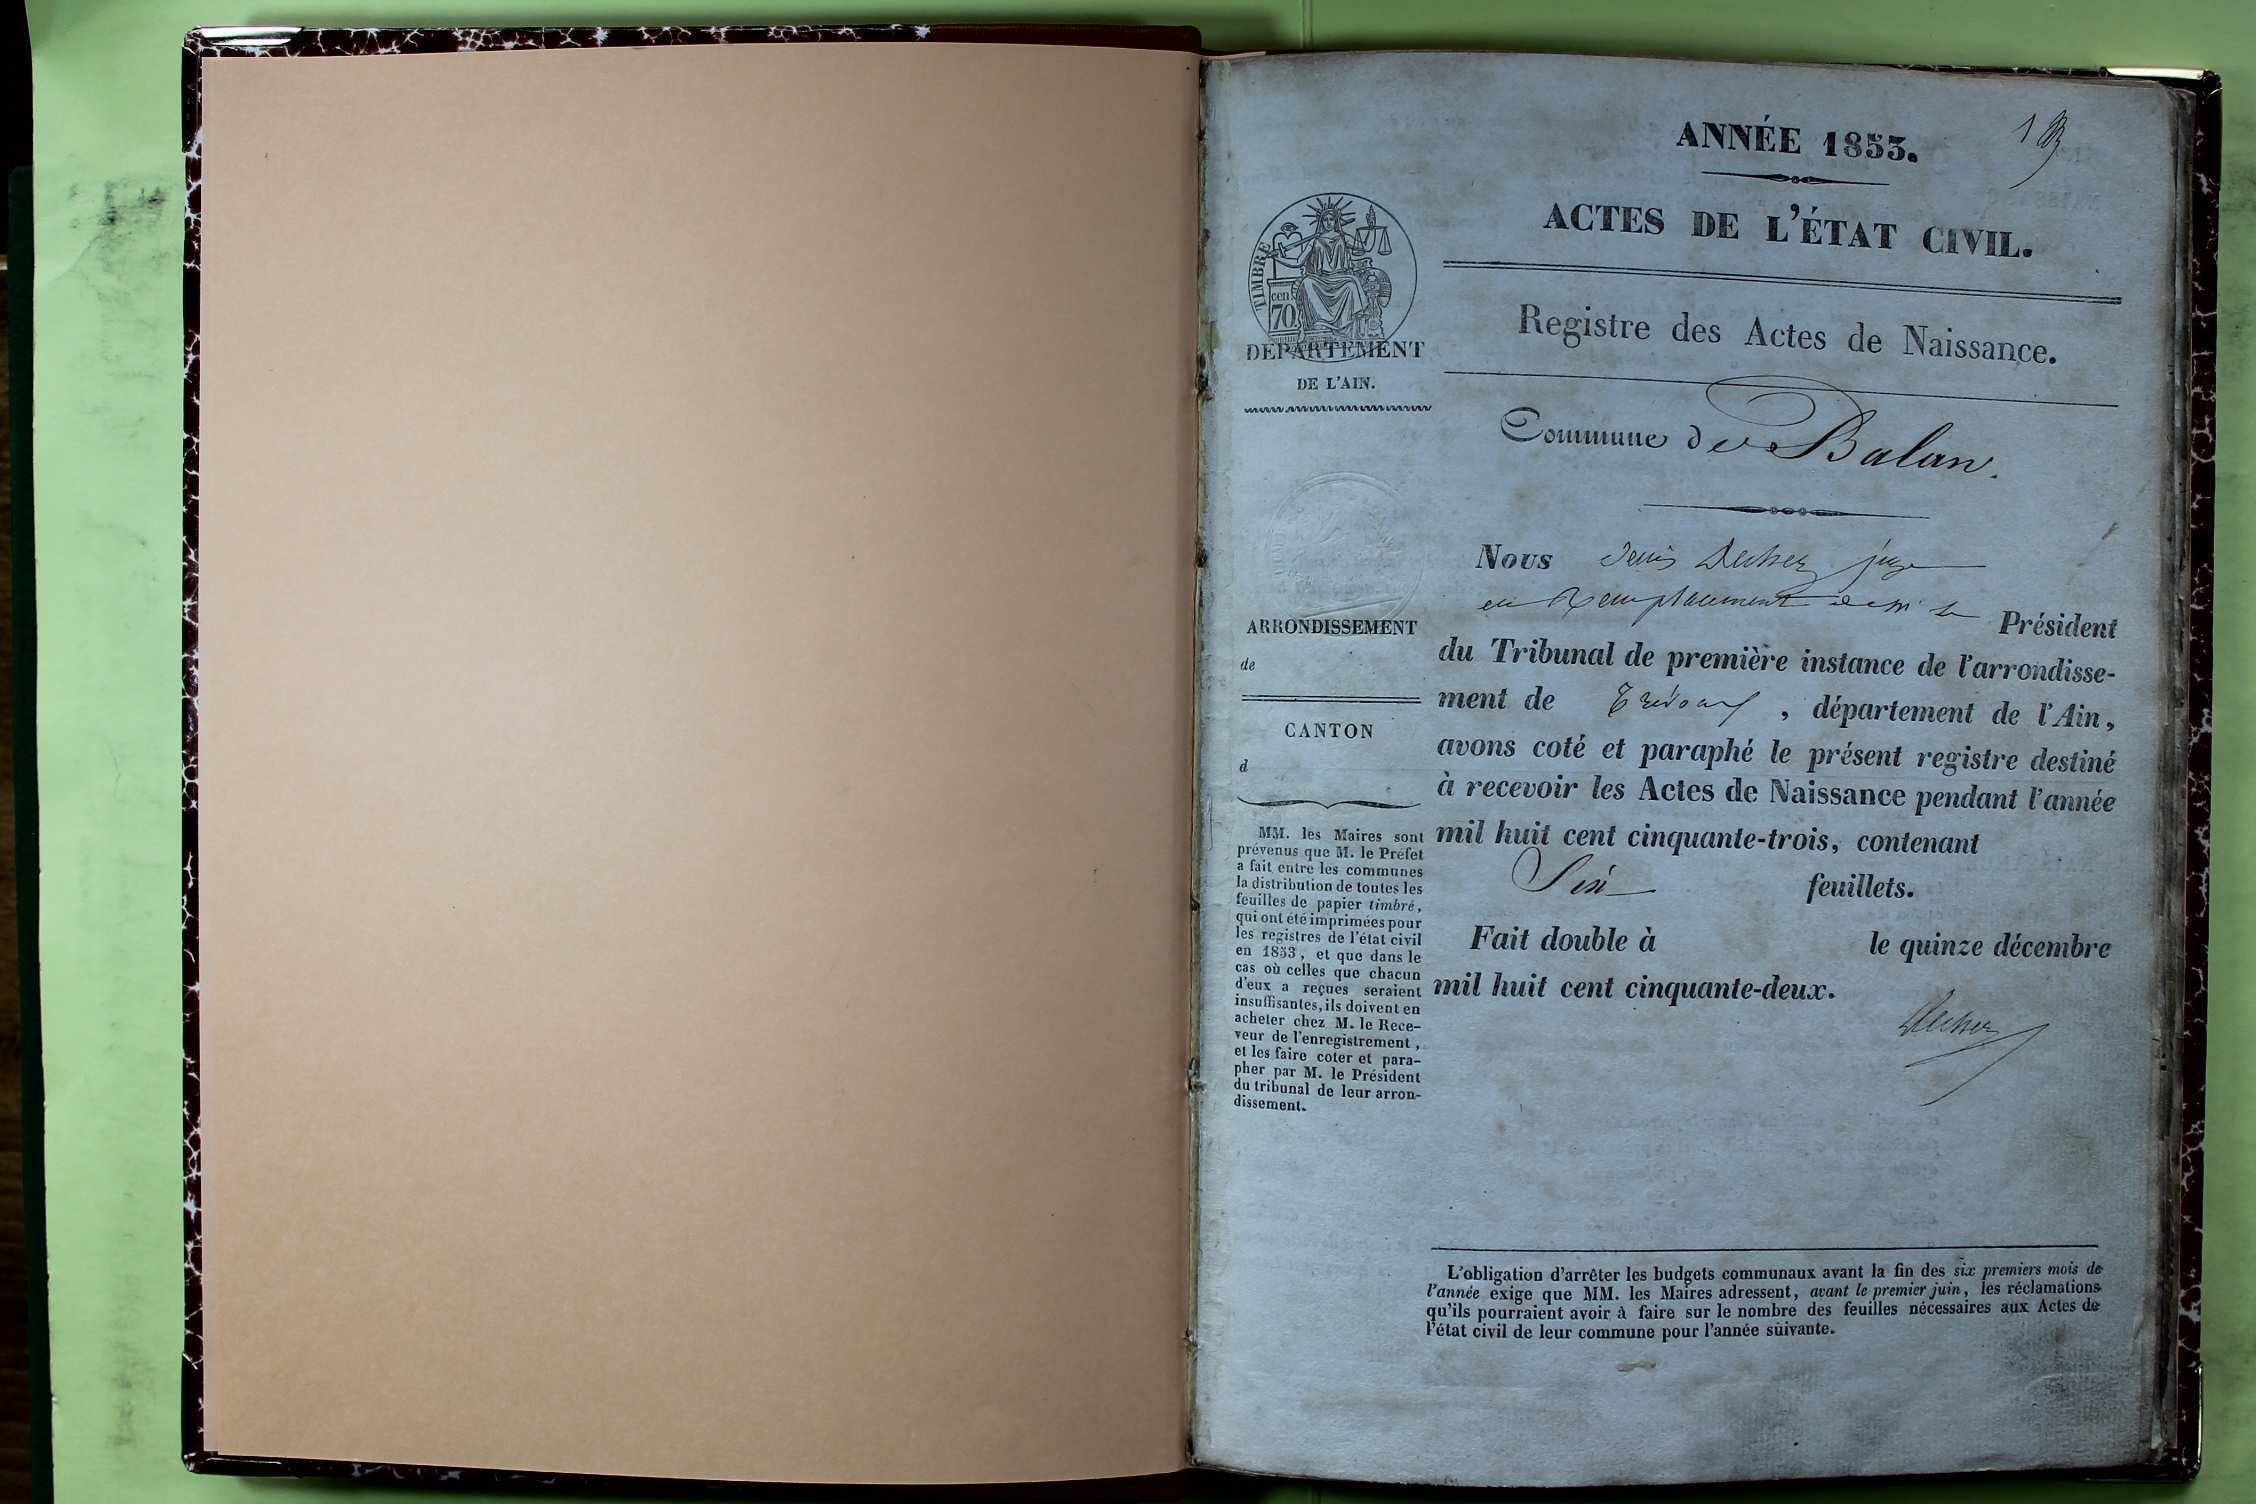 1
ANNÉE 1853.
ACTES DE L'ÉTAT CIVIL.
TIMBRE
cen.
70
DÉPARTEMENT
DE L'AIN.
Registre des Actes de Naissance.
Commune de Balan.
Nous Denis juge
en Remplacement de Mr le Président
du Tribunal de première instance de l'arrondisse-
ment de Trévoux, département de l'Ain,
avons coté et paraphé le présent registre destiné
à recevoir les Actes de Naissance pendant l'année
mil huit cent cinquante-trois, contenant
Six feuillets.
Fait double à le quinze décembre
mil huit cent cinquante-deux.
ARRONDISSEMENT
de
CANTON
d
MM. les Maires sont
prévenus que M. le Préfet
a fait entre les communes
la distribution de toutes les
feuilles de papier timbré,
qui ont été imprimées pour
les registres de l'état civil
en 1853, et que dans le
cas où celles que chacun
d'eux a reçues seraient
insuffisantes, ils doivent en
acheter chez M. le Rece-
veur de l'enregistrement,
et les faire coter et para-
pher par M. le Président
du tribunal de leur arron-
dissement.
L'obligation d'arrêter les budgets communaux avant la fin des six premiers mois de
l'année exige que MM. les Maires adressent, avant le premier juin, les réclamations
qu'ils pourraient avoir à faire sur le nombre des feuilles nécessaires aux Actes de
l'état civil de leur commune pour l'année suivante.